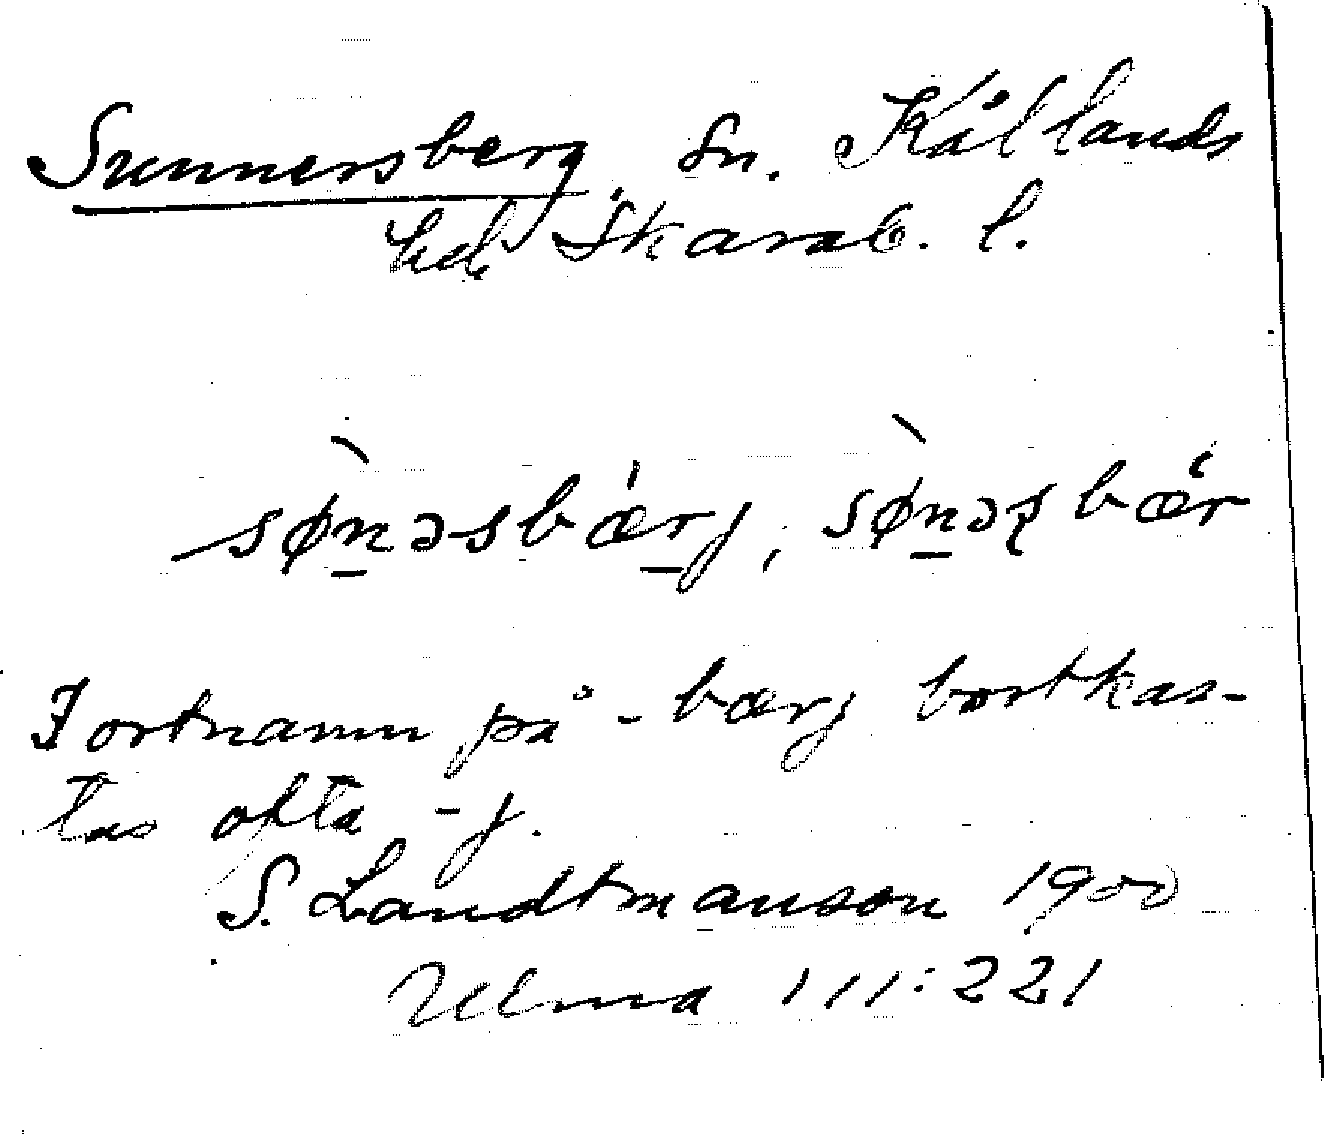 Sunnersberg, sn. Kållands
hd. Skarab. l.
sø̀n̲əsbær̲j, sø̀n̲əʂbær
I ortnamn på -bærj bortkas-
tas ofta -j.
S. Landtmanson 1900
Ulma 111:221